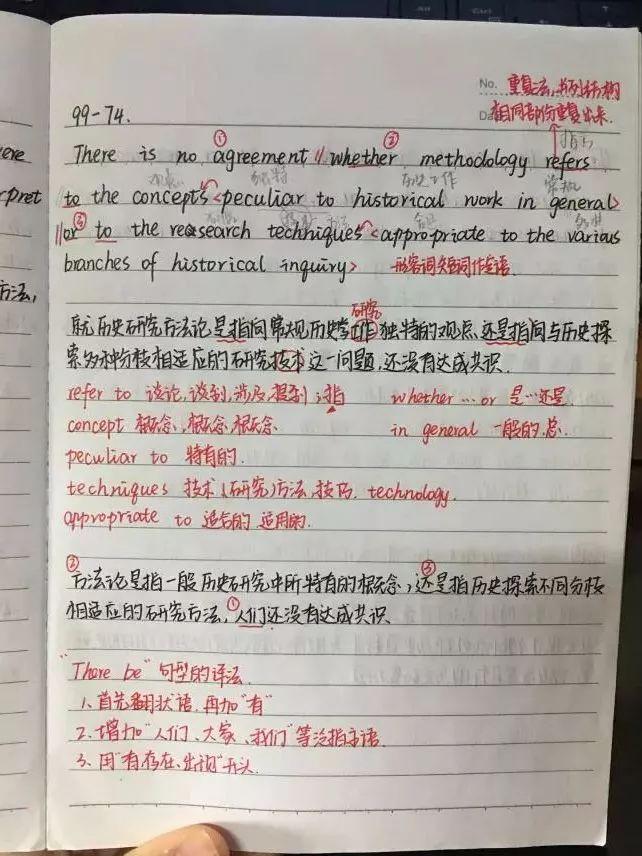 ere
rpret
方法,
No. 重复法,并列结构
Da 相同部分重复出来.
99-74.
① ② 指向
There is no agreement // whether methodology refers
独特 历史工作 常规
to the concepts <peculiar to historical work in general>
// ③ or to the research techniques <appropriate to the various
branches of historical inquiry> 形容词短语作定语
研究
就历史研究方法论是指向常规历史学工作独特的观点,还是指向与历史探
索多种分枝相适应的研究技术这一问题,还没有达成共识.
refer to 谈论,谈到,涉及,提到;指 whether … or 是…还是
concept 概念, in general 一般的.总
peculiar to 特有的.
techniques 技术,(研究)方法,技巧. technology.
appropriate to 适合的 适用的.
② ③
方法论是指一般历史研究中所特有的概念,还是指历史探索不同分枝
相适应的研究方法,①人们还没有达成共识.
"There be" 句型的译法.
1、首先翻状语,再加"有"
2、增加"人们、大家、我们"等泛指主语.
3、用"有、存在、出现"开头.